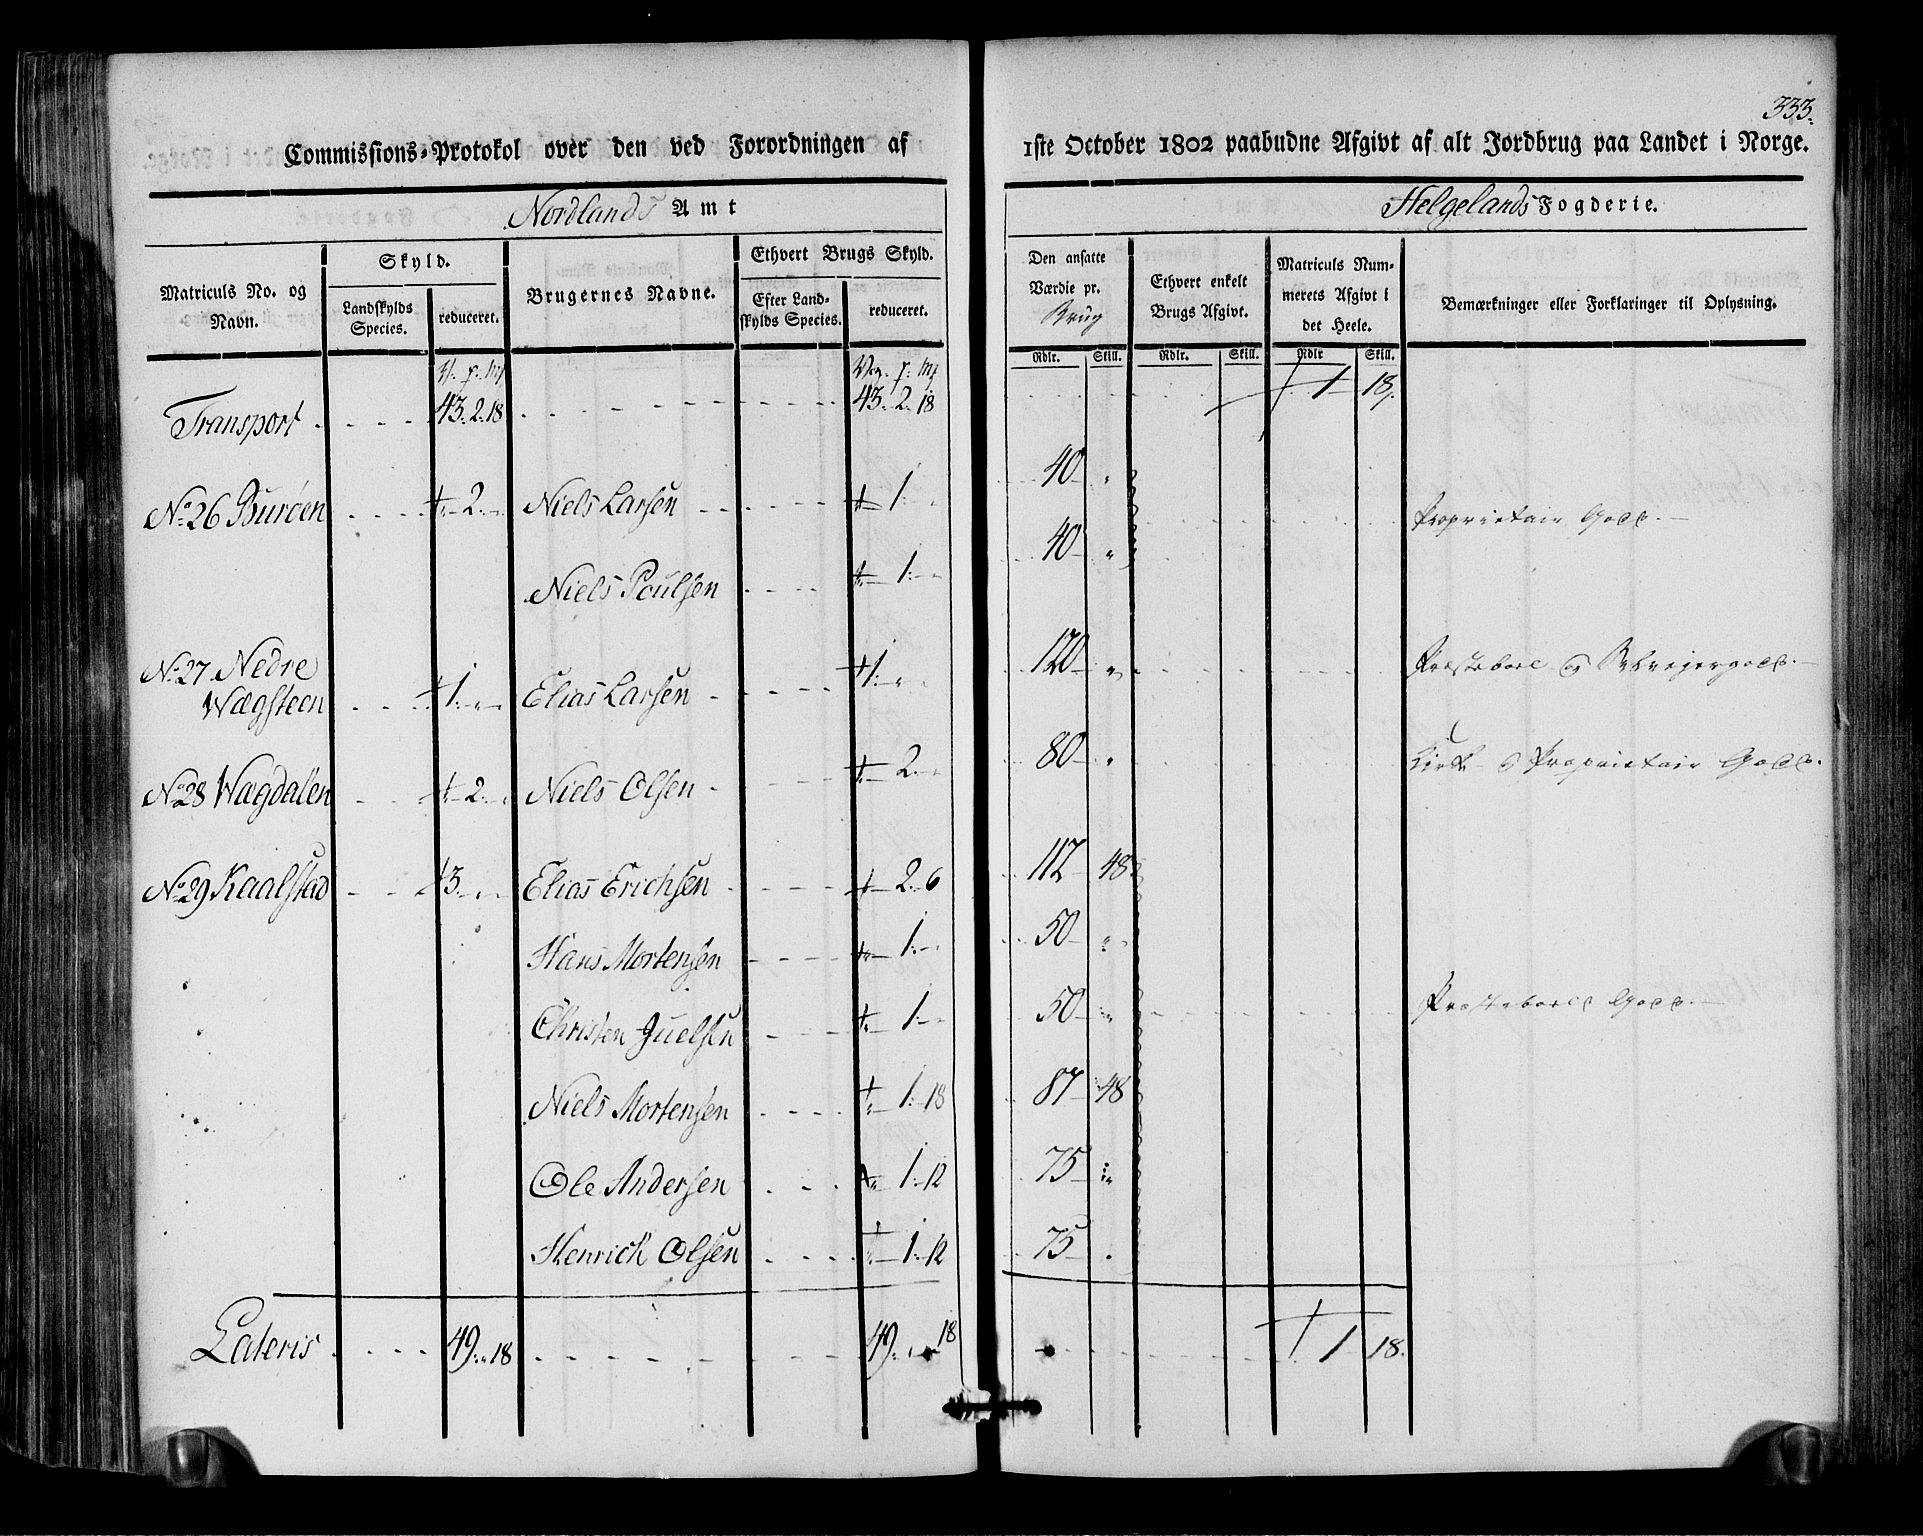 333.
Commissions-Protokol over den ved Forordningen af 1ste October 1802 paabudne Afgivt af alt Jordbrug paa Landet i Norge.
Nordlands Amt Helgelands Fogderie.
Matriculs No. og Navn. Skyld. Landskylds Species. reduceret. Brugernes Navne. Ethvert Brugs Skyld. Efter Landskylds Species. reduceret. Den ansatte Værdie pr. Brug Ethvert enkelt Brugs Afgivt. Matriculs Nummerets Afgivt i det Heele. Bemærkninger eller Forklaringer til Oplysning.
Rdlr. Skill. Rdlr. Skill. Rdlr Skill.
Transport 43. 2. 18 43. 2. 18 1 18
No. 26 Buröen 2 Niels Larsen 1 40 Proprietair Gods.
Niels Poulsen 1 40
No. 27 Nedre
Wægsteen 1 Elias Larsen 1 120 Præstebord & Selveyergods.
No. 28 Wægdalen 2 Niels Olsen 2 80 Kirke & Proprietair Gods.
No. 29 Kaalstad 3 Elias Erichsen 2 6 112 48
Hans Mortensen 1 50
Christen Juelsen 1 50 Præstebords Gods.
Niels Mortensen 1 18 87 48
Ole Andersen 1 12 75
Henrich Olsen 1 12 75
Lateris 49 18 49 18 1 18.